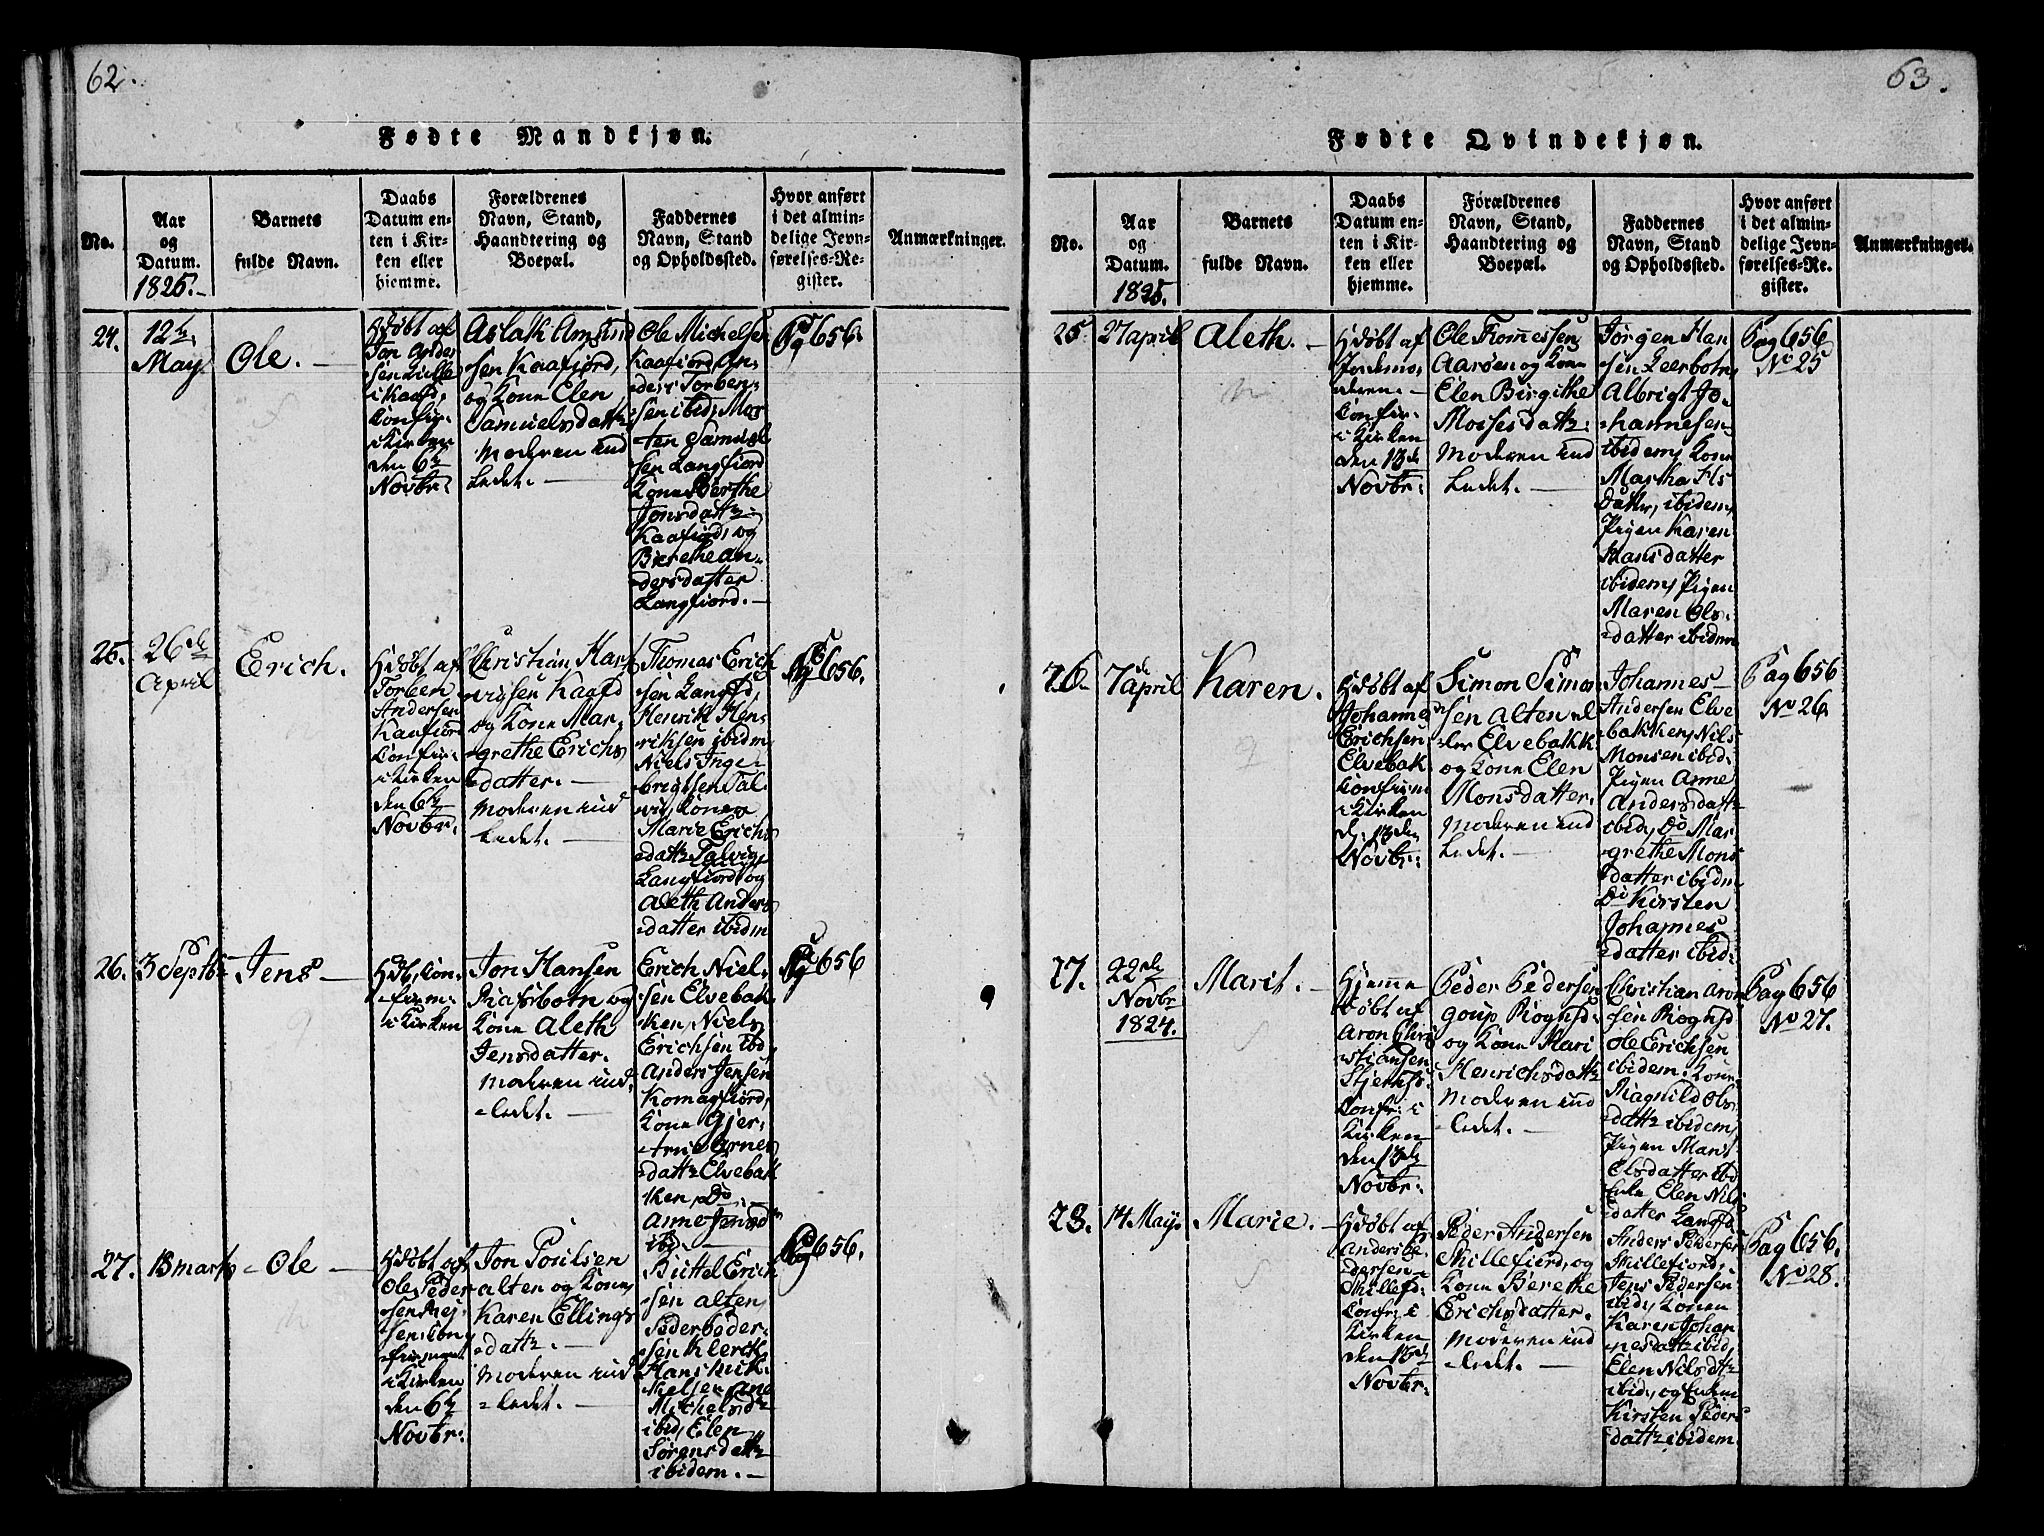 62.
Fødte Mandkjøn.
No.
Aar
og
Datum.
1825.
Barnets
fulde Navn.
Daabs
Datum en-
ten i Kir-
ken eller
hjemme.
Forældrenes
Navn, Stand,
Haandtering og
Boepæl.
Faddernes
Navn, Stand
og Opholdssted.
Hvor anført
i det almin-
delige Jevn-
førelses-Re-
gister.
Anmærkninger.
24.
12te
May
Ole. —
Hdøbt af
Jon Ander
sen
i Kaafd,
Confir-
i Kirken
den 6te
Novbr:
Aslak Amund
sen Kaafjord,
og Kone Elen
Samuelsdattr
Moderen ind
ledet. —
Ole Michelsen
Kaafjord, An-
ders Torben-
sen ibid, Mor
ten Samuel
sen Langfiord
Kone Berthe
Jonsdattr
Kaafiord, og
Berethe An-
dersdatter
Langfiord. —
Pg 656.
25.
26de
April
Erich.
Hdøbt af
Torben
Andersen
Kaafiord
Confir-
i Kirken
den 6te
Novbr:
Christian Har
vigsen Kaafd
og Kone Mar-
grethe Erichs
datter. —
Moderen ind
ledet. —
Thomas Erich
sen Langfd,
Henrik Hen-
riksen ibidm
Niels Inge-
brigtsen Tal-
vig, Konen
Marie Erichs
dattr Talvig
Langfiord, og
Aleth Anders
datter ibidm
Pg 656.
26.
3 Septbr
Jens —
Hdb, Con-
firm-
i Kirken
Jon Hansen
Rafsbotn og
Kone Aleth
Jensdatter.
Moderen ind-
ledet. —
Erich Niel-
sen Elvebak-
ken, Niels
Erichsen ibd
Anders Jensen
Komagfiord,
Kone Gjer-
tru Arnes
dattr Elvebak
ken, Do
Anne Jensd
ibd. —
Pg 656
27.
13 marts
Ole —
Hdøbt af
Ole Peder
sen
Con
firmer
i Kirken
den 6te
Novbr:
Jon Poulsen
alten og Kone
Karen Ellings
datt. —
Moderen ind
ledet. —
Bittel Erich
sen alten,
Peder Peder-
sen Klerck
Hans
Nielsen, Ane
Michelsdtr
ibid, Elen
Sørensdattr
ibidem. —
Pg 656.
63.
Fødte Qvindekjøn.
No.
Aar
og
Datum.
1825.
Barnets
fulde Navn.
Daabs
Datum en-
ten i Kir-
ken eller
hjemme.
Forældrenes
Navn, Stand,
Haandtering og
Boepæl.
Faddernes
Navn, Stand
og Opholdssted.
Hvor anført
i det almin-
delige Jevn-
førelses-Re-
gister.
Anmærkninger.
25.
27 april
Aleth. —
Hdøbt af
Jordemo-
deren —
Confir-
i Kirken
den 13de
Novbr:
Ole Thomessen
Aarøen og Kone
Elen Birgithe
Mosesdattr
Moderen ind
ledet. —
Jørgen Han
sen Leerbotn,
Albrigt Jo-
hannesen
ibidem, Kone
Martha Els
datter, ibidem,
Pigen Karen
Hansdatter
ibidem, Pigen
Maren Ols-
datter ibidem
Pag 656
No 25
26.
7de april
Karen.
Hdøbt af
Johannes
Erichsen
Elvebak
Confirm
i Kirken
d: 13de
Novbr:
Simon Simon
sen Alten el
ler Elvebakk
og Kone Elen
Monsdatter.
Moderen ind
ledet. —
Johannes
Andersen Elve
bakken, Nils
Monsen ibid
Pigen Anne
Andersdattr
ibid, Do Mar
grethe Mons
datter ibidm
Do Kirsten
Johannes
datter ibid:
Pag 656
No 26
27.
22de
Novbr
1824.
Marit. —
Hjemme
døbt af
Aron Chri
stiansen
Stjernsd
Confr: i
Kirken
den 13de
Novbr:
Peder Pedersen
goup Rognsd
og Kone Mari
Henrichsdattr
Moderen ind
ledet. —
Christian Aron
sen Rognsd
Ole Erichsen
ibidem. Kone
Magnild Ols-
dattr ibidem,
Pigen Marit
Olsdatter ibd
Enke Elen Nils
datter Langfd
Pag 656
No 27.
28.
14 May
Marie. —
Hdøbt af
Anders Pe-
dersen
Skillefd.
Confr: i
Kirken
den 13de
Novbr:
Peder Andersen
Skillefiord, og
Kone Berethe
Erichsdatter.
Moderen ind
ledet. —
Anders Pedersen
Skillefiord,
Jens Pedersen
ibid, Konen
Karen Johan
nesdatt ibid,
Elen Nilsdttr
ibid, og Enken
Kirsten Peders
dattr ibidem
Pag 656.
No 28.